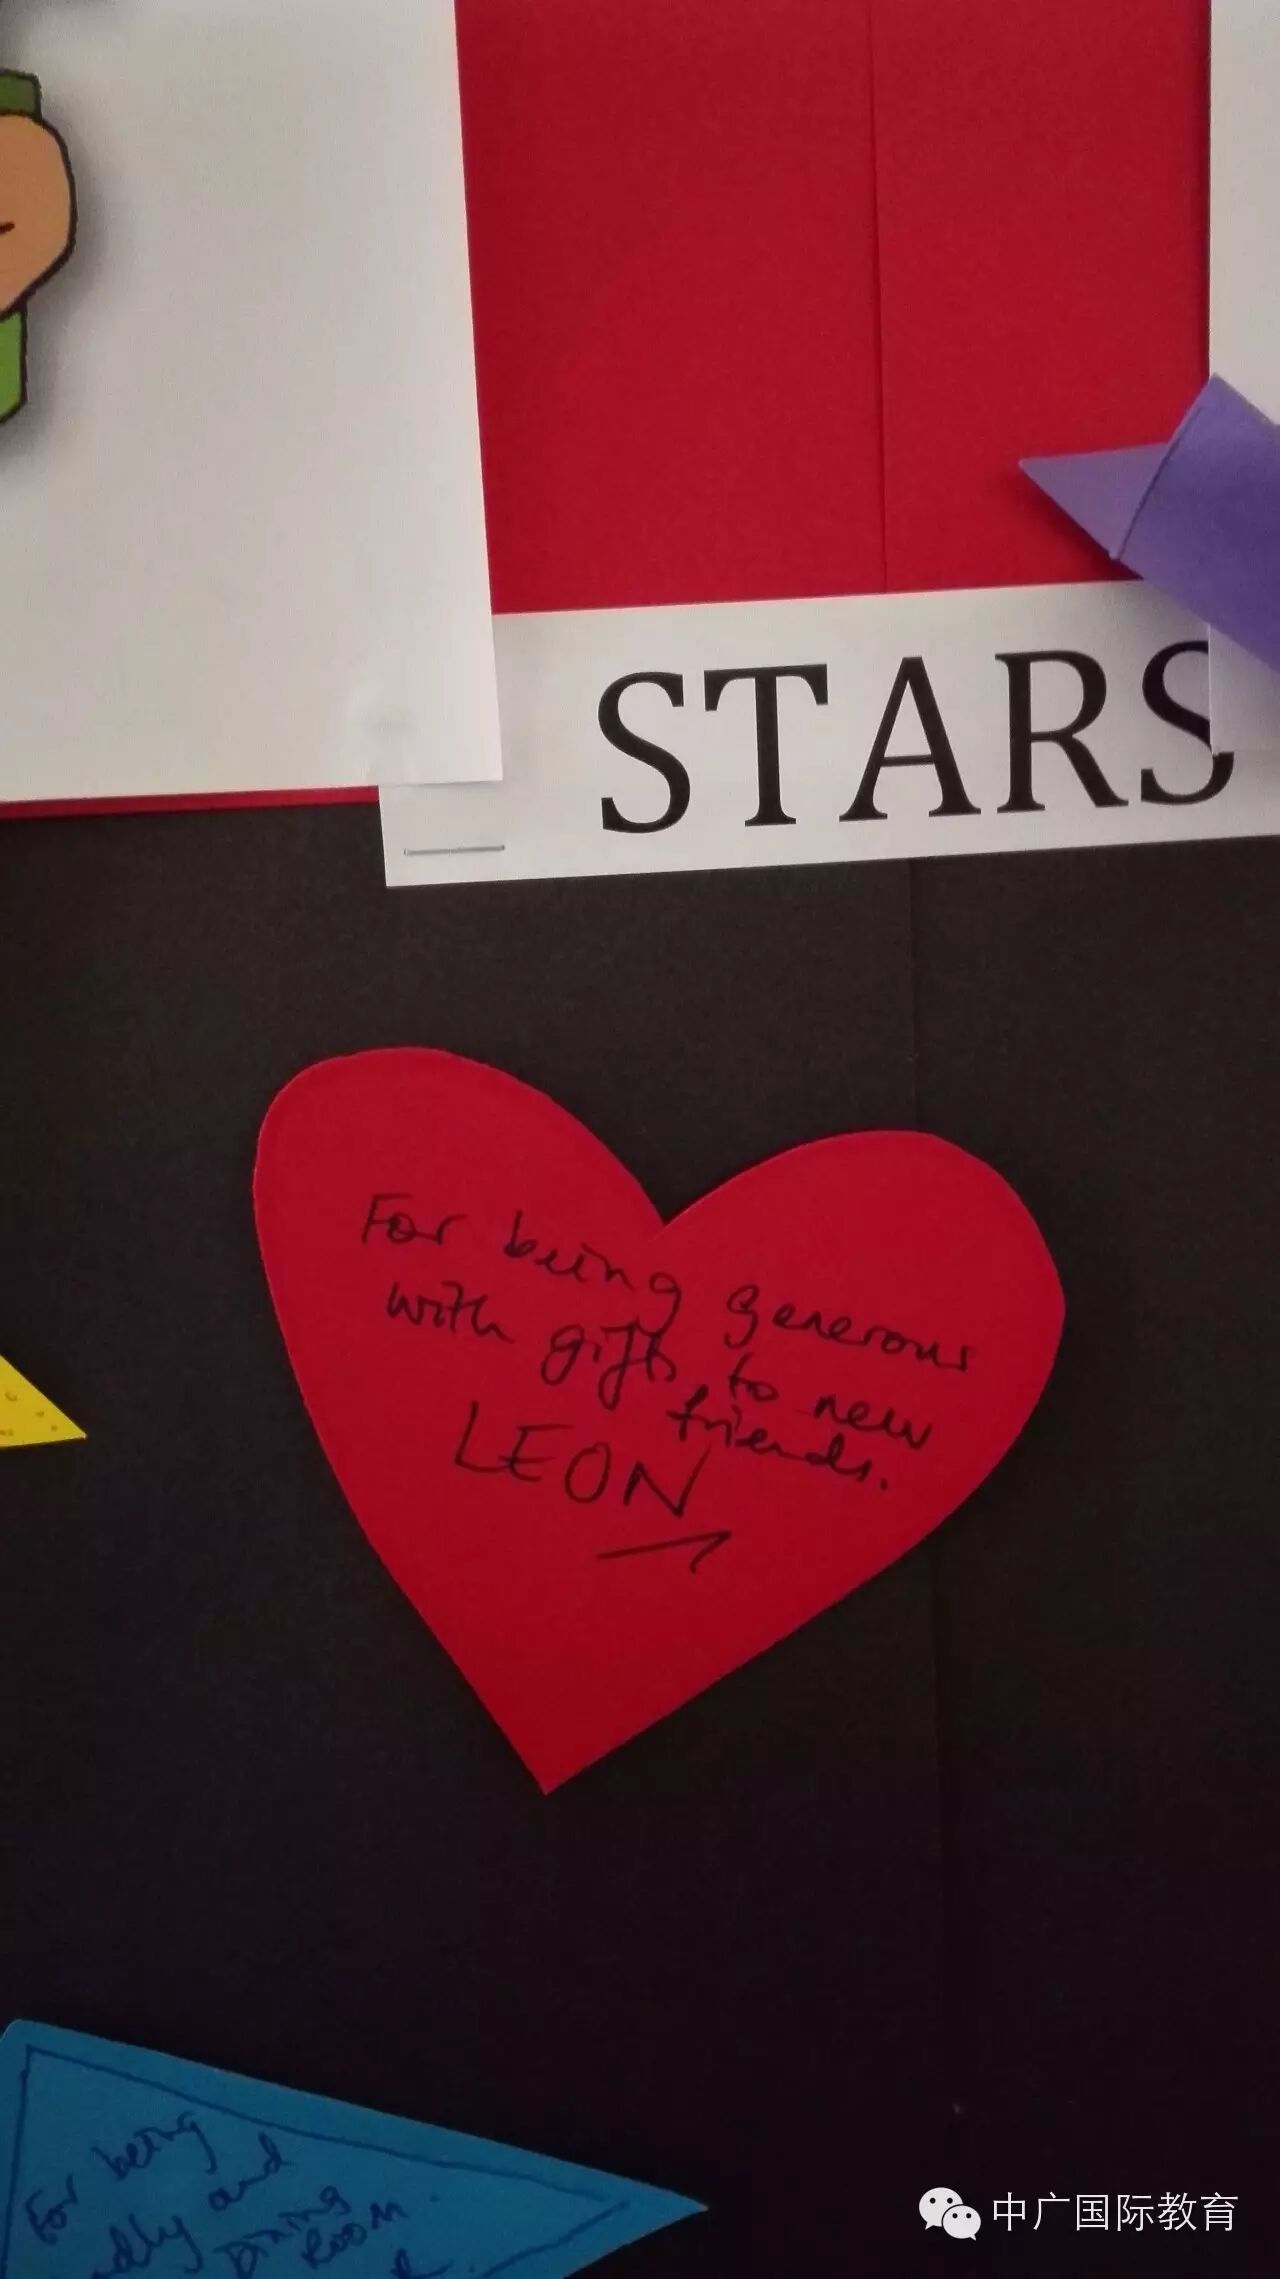 STARS
For being generous
with gifts to new
friends.
LEON
For being
and
Dining
Room
中广国际教育